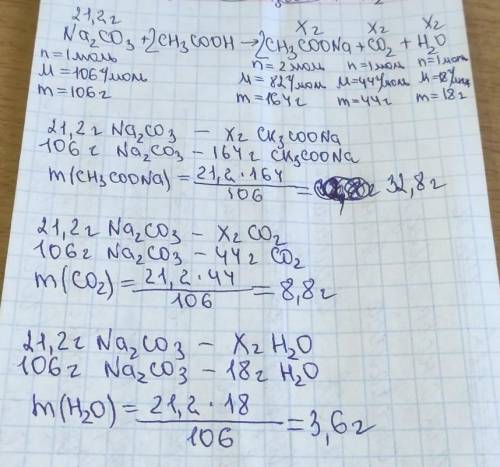 21,2г Xг Xг Xг
Na₂CO₃ + 2CH₃COOH → 2CH₃COONa + CO₂ + H₂O
n = 1моль n = 2моль n = 1моль n = 1моль
M = 106г/моль M = 82г/моль M = 44г/моль M = 18г/моль
m = 106г m = 164г m = 44г m = 18г
21,2г Na₂CO₃ – Xг CH₃COONa
106г Na₂CO₃ – 164г CH₃COONa
m(CH₃COONa) = 21,2·164 / 106 = 32,8г
21,2г Na₂CO₃ – Xг CO₂
106г Na₂CO₃ – 44г CO₂
m(CO₂) = 21,2·44 / 106 = 8,8г
21,2г Na₂CO₃ – Xг H₂O
106г Na₂CO₃ – 18г H₂O
m(H₂O) = 21,2·18 / 106 = 3,6г